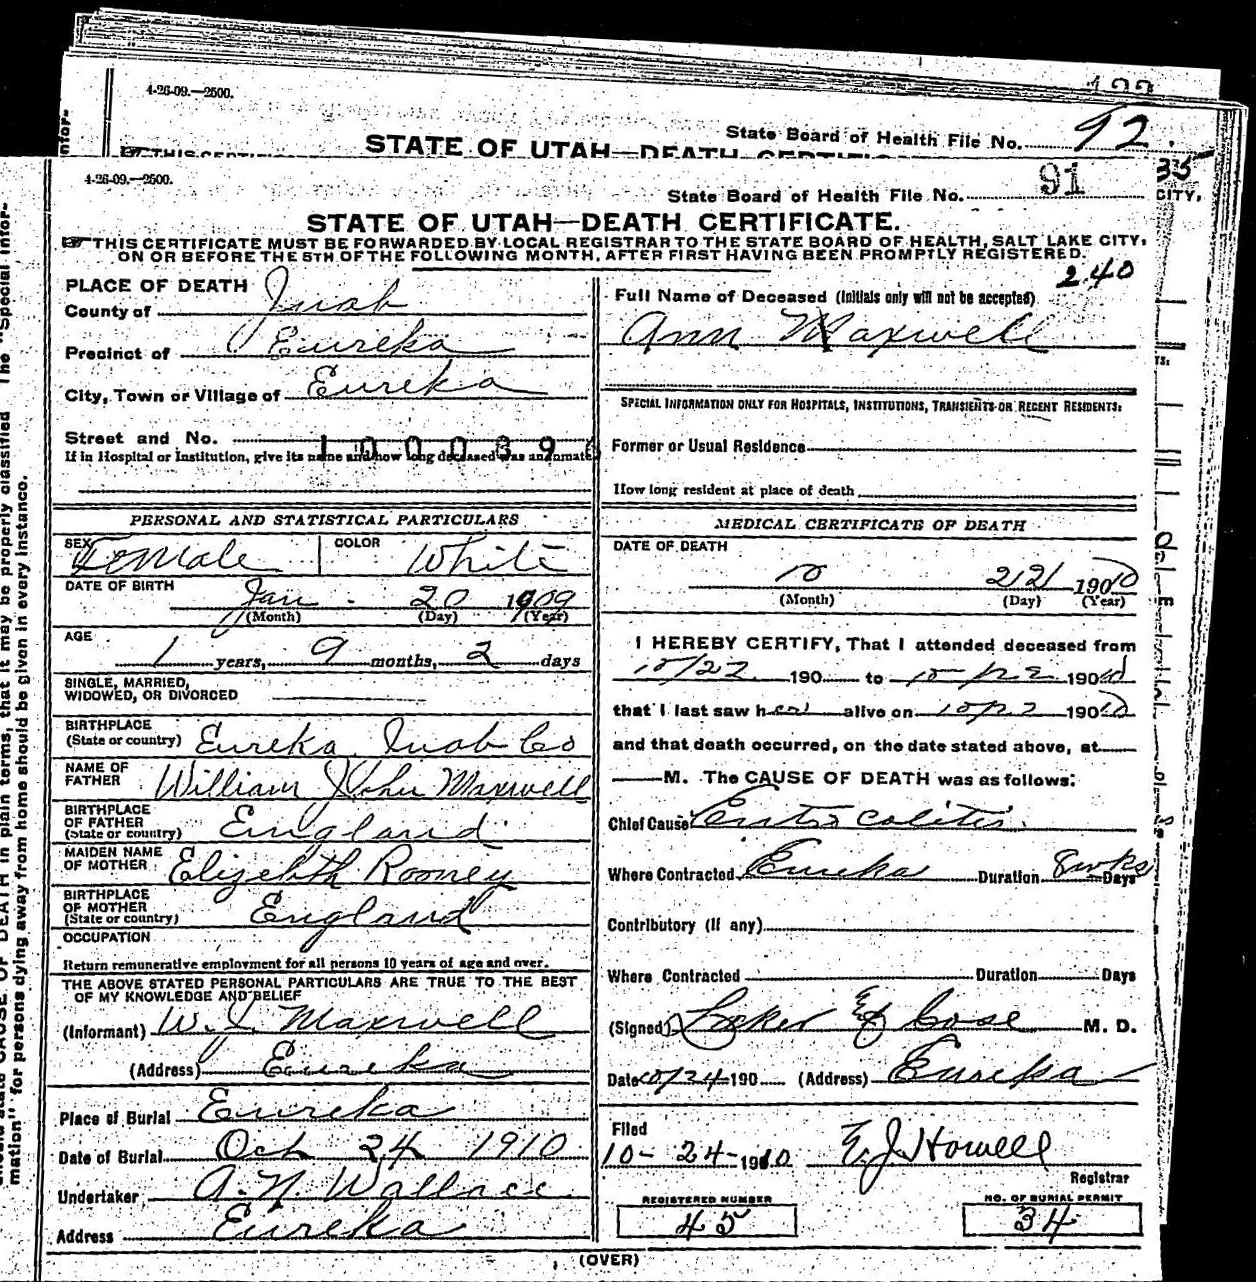 4-26-09.—2500.
State Board of Health File No. 92.
STATE OF UTAH—DEATH
35
CITY,
4-26-09.—2500.
State Board of Health File No. 91
STATE OF UTAH—DEATH CERTIFICATE.
THIS CERTIFICATE MUST BE FORWARDED BY LOCAL REGISTRAR TO THE STATE BOARD OF HEALTH, SALT LAKE CITY,
ON OR BEFORE THE 5TH OF THE FOLLOWING MONTH, AFTER FIRST HAVING BEEN PROMPTLY REGISTERED.
240
PLACE OF DEATH
County of Juab
Precinct of Eureka
City, Town or Village of Eureka
Street and No.
1000396
If in Hospital or Institution, give its name and how long deceased was an inmate
PERSONAL AND STATISTICAL PARTICULARS
SEX Female COLOR White
DATE OF BIRTH
Jan. 20 1909
(Month) (Day) (Year)
AGE
1 years, 9 months, 2 days
SINGLE, MARRIED,
WIDOWED, OR DIVORCED
BIRTHPLACE
(State or country) Eureka Juab Co
NAME OF
FATHER William John Maxwell
BIRTHPLACE
OF FATHER
(State or country) England
MAIDEN NAME
OF MOTHER Elizebth Rooney
BIRTHPLACE
OF MOTHER
(State or country) England
OCCUPATION
Return remunerative employment for all persons 10 years of age and over.
THE ABOVE STATED PERSONAL PARTICULARS ARE TRUE TO THE BEST
OF MY KNOWLEDGE AND BELIEF
(Informant) W. J. Maxwell
(Address) Eureka
Place of Burial Eureka
Date of Burial Oct 24 1910
Undertaker A. N. Wallace
Address Eureka
Full Name of Deceased (Initials only will not be accepted)
Ann Maxwell
SPECIAL INFORMATION ONLY FOR HOSPITALS, INSTITUTIONS, TRANSIENTS OR RECENT RESIDENTS:
Former or Usual Residence
How long resident at place of death
MEDICAL CERTIFICATE OF DEATH
DATE OF DEATH
10 22 1910
(Month) (Day) (Year)
I HEREBY CERTIFY, That I attended deceased from
10/22 190 to 10/22 1910
that I last saw her alive on 10/22 1910
and that death occurred, on the date stated above, at
M. The CAUSE OF DEATH was as follows:
Chief Cause Entero colitis.
Where Contracted Eureka Duration 8 wks Days
Contributory (if any)
Where Contracted Duration Days
(Signed) Case M. D.
Date 10/24 190 (Address) Eureka
Filed
10-24-1910 E. J. Howell
Registrar
REGISTERED NUMBER
45
NO. OF BURIAL PERMIT
34
(OVER)
OF DEATH in plain terms, that it may be properly classified The "Special Infor-
mation" for persons dying away from home should be given in every instance.